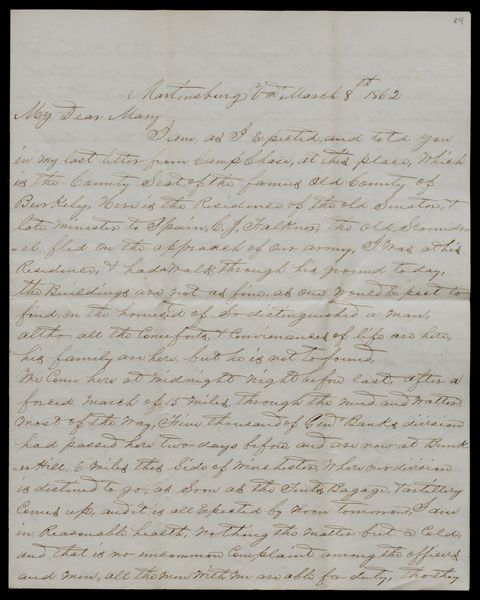 84
Martinsburg Va March 8th 1862
My Dear Mary
I am, as I Expected, and told you
in my last letter from Camp Chase, at this place, Which
is the County Seat, of the famus Old County of
Burkely, Here is the Residence of the old Senator, &
late minister to Spain, C. J. Falkner, the Old Scoundr-
el. fled on the approach of our army, I Was at his
Residence, & had a walk through his ground to day,
the Buildings are not as fine, as one Would Expect to
find, on the homested of So distinguished a man,
altho all the Comforts, & Convenances of life are here,
his family are here, but he is not to found,
We Come here at Midnight Night before last, after a
forced March of 15 Miles, through the Mud and Watter
Most of the Way, thousand of Genl Banks division
had passed here two days before, and are now at Bunk-
er Hill, 6 Miles this Side of Winshester, Where our division
is destined to go, as Soon as the Tents Bagage, & artillery
Comes up, and it is all Expected by Noon tomorrow, I am
in Reasonable health, Nothing the Matter but a Cold,
and that is no uncommon Complaint among the officers
and men, all the Men With me are able for duty, tho they